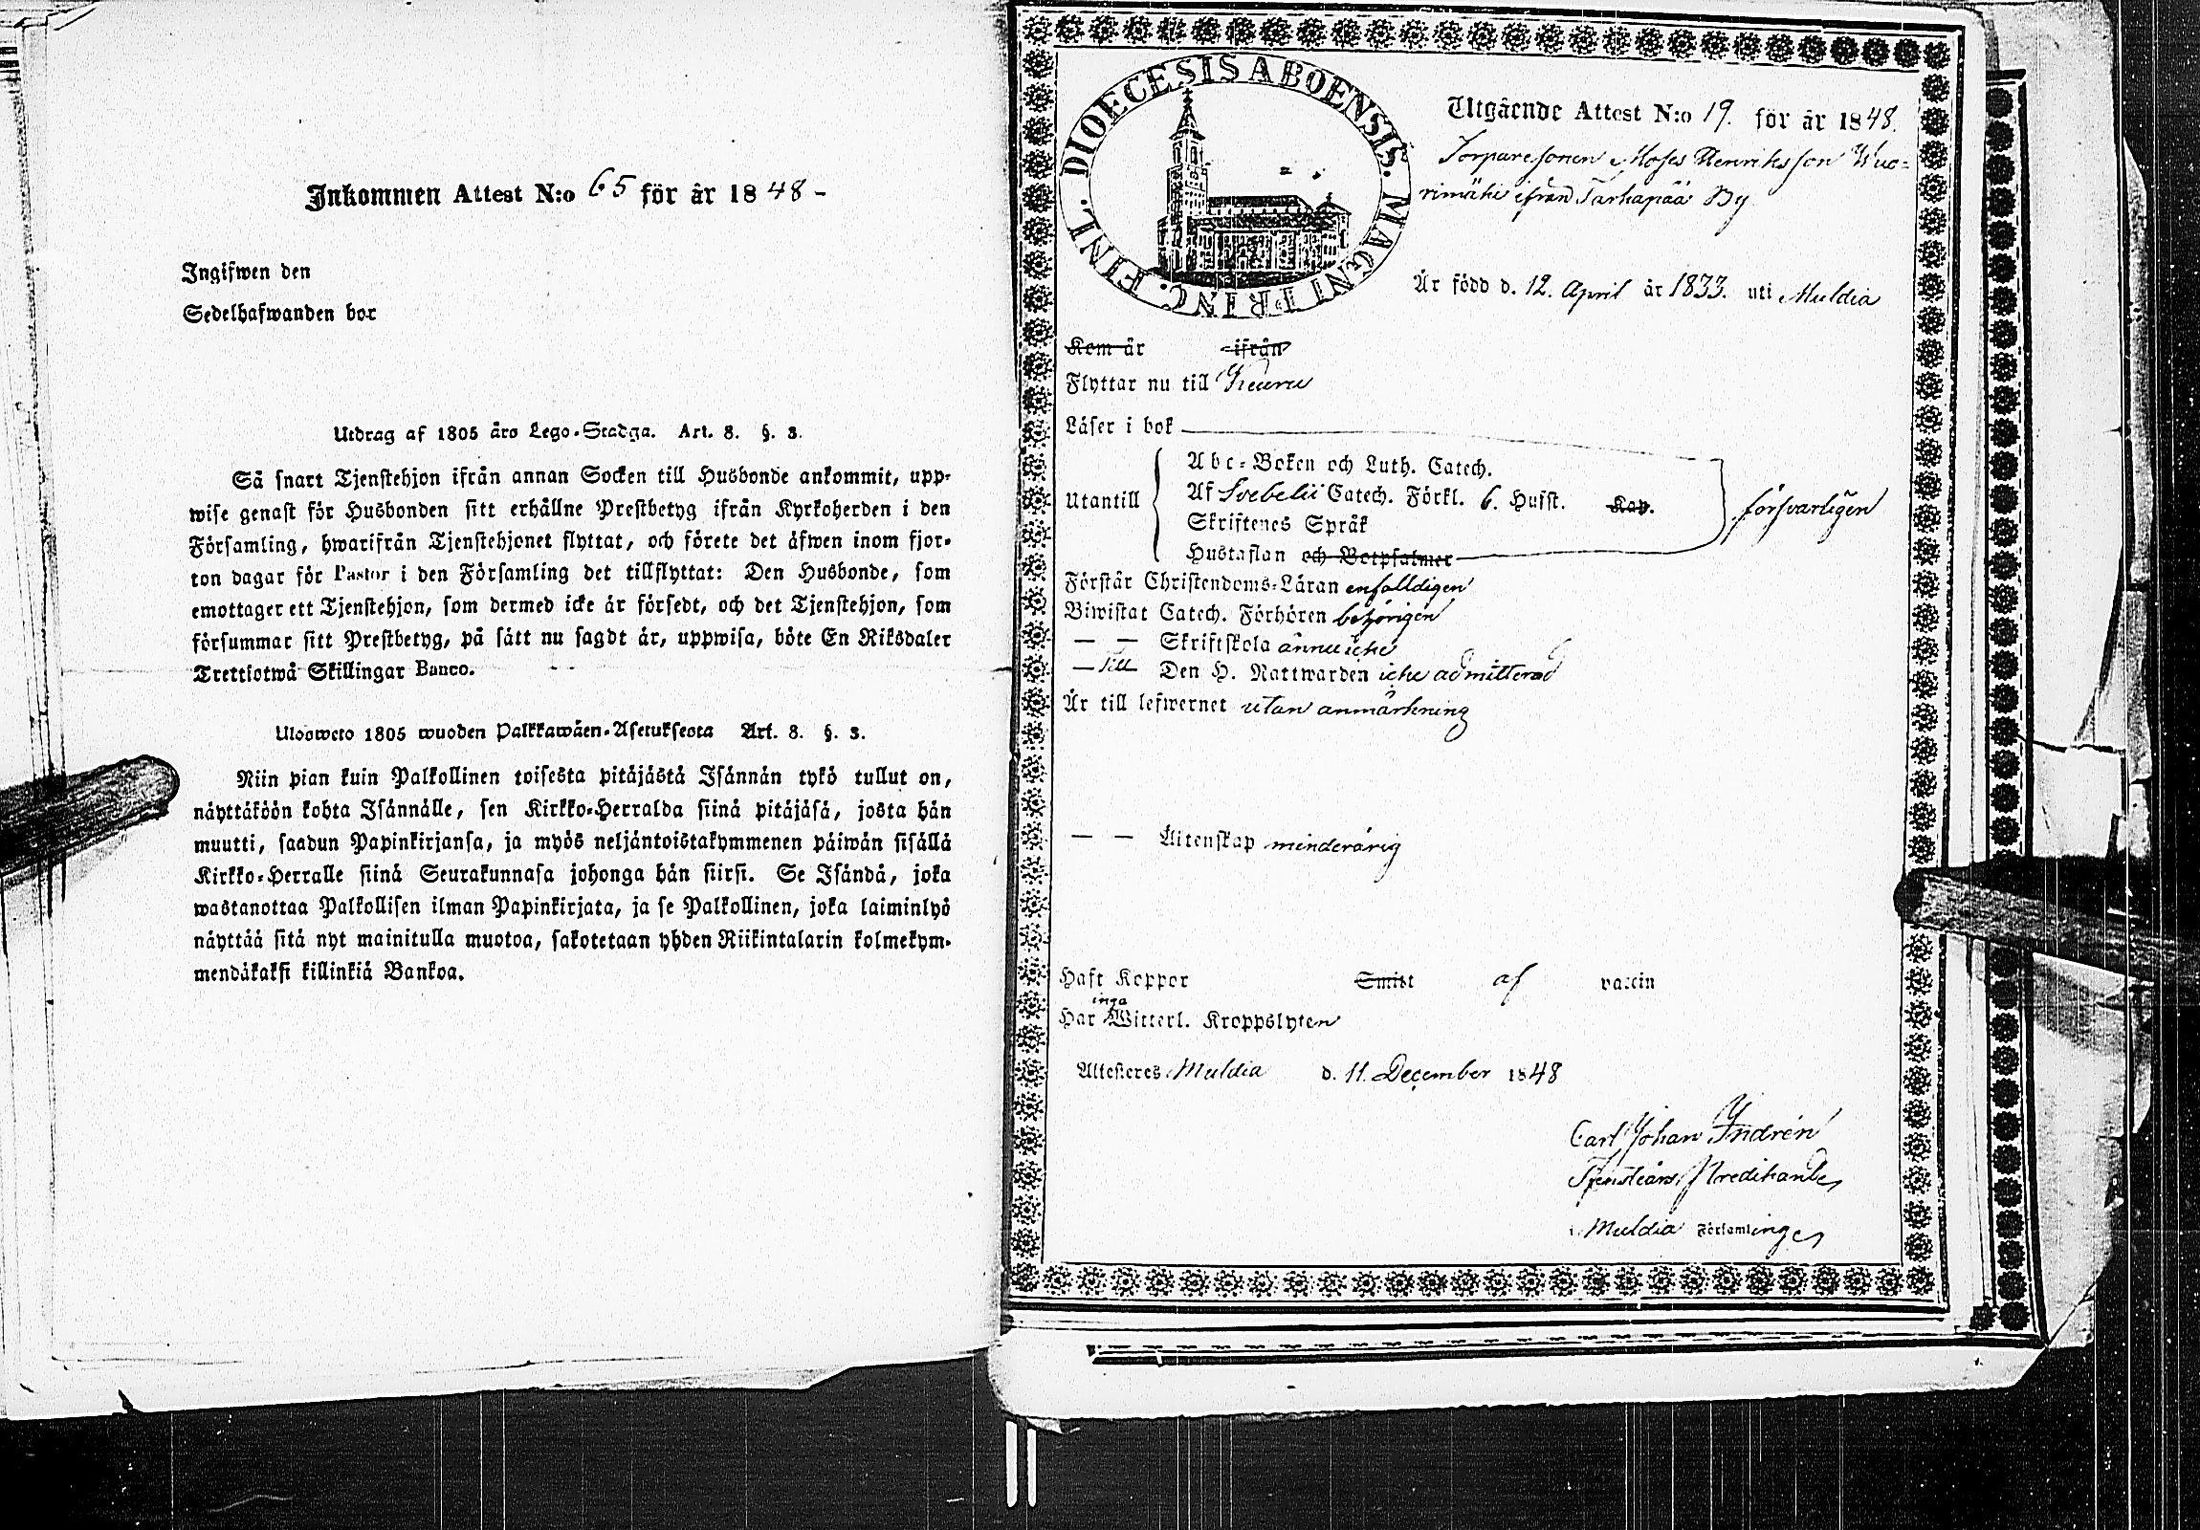 Inkommen Attest N:o 65 för år 1848 -
Ingifwen den
Sedelhafwanden bor
Utdrag af 1805 års Lego-Stadga. Art. 8. §. 3.
Så snart Tjenstehjon ifrån annan Socken till Husbonde ankommit, upp-
wise genast för Husbonden sitt erhållne Prestbetyg ifrån Kyrkoherden i den
Församling, hwarifrån Tjenstehjonet flyttat, och förete det äfwen inom fjor-
ton dagar för Pastor i den Församling det tillflyttat: Den Husbonde, som
emottager ett Tjenstehjon, som dermed icke är försedt, och det Tjenstehjon, som
försummar sitt Prestbetyg, på sätt nu sagdt är, uppwisa, böte En Riksdaler
Trettiotwå Skillingar Banco.
Ulosweto 1805 wuoden Palkkawäen-Asetuksesta Art. 8. §. 3.
Niin pian kuin Palkollinen toisesta pitäjästä Isännän tykö tullut on,
näyttäköön kohta Isännälle, sen Kirkko-Herralda siinä pitäjäsä, josta hän
muutti, saadun Papinkirjansa, ja myös neljäntoistakymmenen päiwän sisällä
Kirkko-Herralle siinä Seurakunnasa johonga hän siirsi. Se Isändä, joka
wastanottaa Palkollisen ilman Papinkirjata, ja se Palkollinen, joka laiminlyö
näyttää sitä nyt mainitulla muotoa, sakotetaan yhden Riikintalarin kolmekym-
mendäkaksi killinkiä Bankoa.
DIOECESIS ABOENSIS. MAGNI PRINC. FINL.
Utgående Attest N:o 19. för år 1848.
Torparesonen Moses Henriksson Wuo-
rimäki ifrån Tarhapää By
Är född d. 12. April år 1833. uti Muldia
Kom år ifrån
Flyttar nu till Keuru
Läser i bok
Utantill
Abc-Boken och Luth. Catech.
Af Svebelii Catech. Förkl. 6. Hufst. Kap.
Skriftenes Språk
Hustaflan och Botpsalmer
försvarligen
Förstår Christendoms-Läran enfalldigen
Biwistat Catech. Förhören behörigen
— — Skriftskola ännu icke
— Till Den H. Nattwarden icke admitterad
Är till lefwernet utan anmärkning
— — Äktenskap minderårig
Haft Koppor Smitt af vaccin
Har inga Witterl. Kroppslyten
Attesteres Muldia d. 11. December 1848
Carl Johan Indrén
Tjensteårs Predikande
i Muldia Församlinge